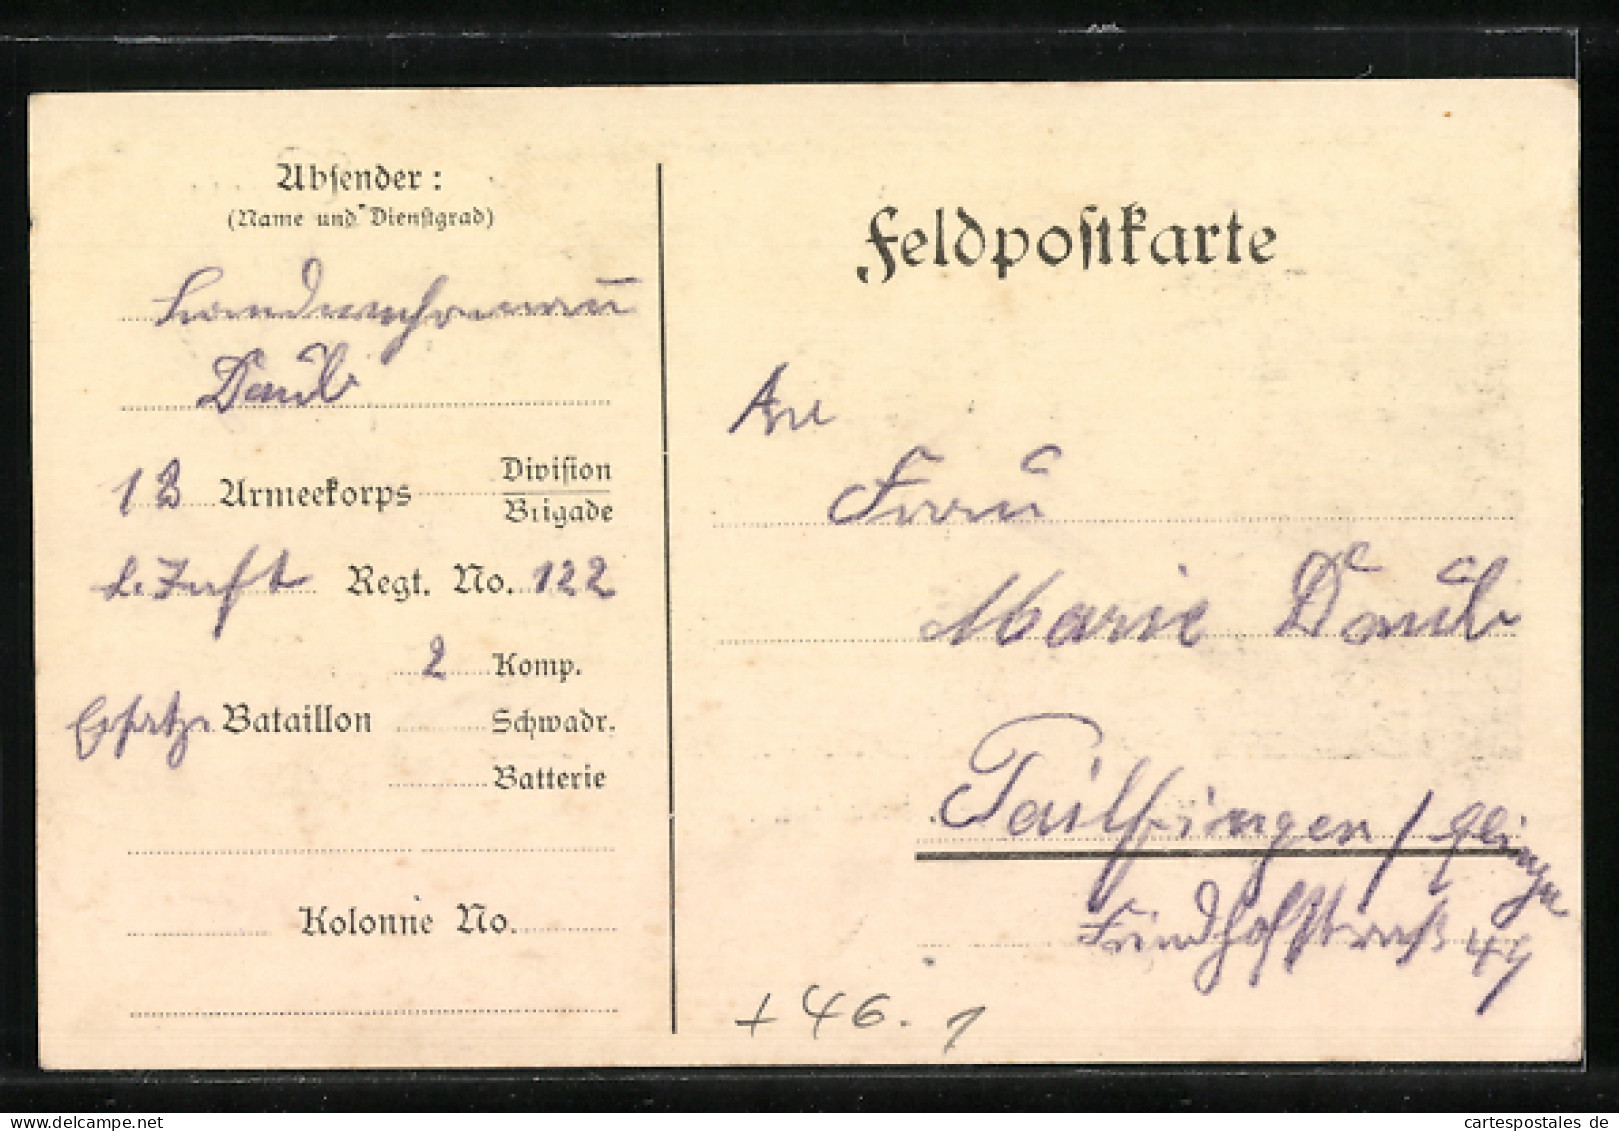 Absender:
(Name und Dienstgrad)
Landwehrmann
Daub
13 Armeekorps Division
Brigade
L. Inft Regt. No. 122
2 Komp.
Ersatz Bataillon Schwadr.
Batterie
Kolonne No.
Feldpostkarte
An
Frau
Marie Daub
Tailfingen /
Friedhofstraß 44
+ 46. 1
cartespostales de